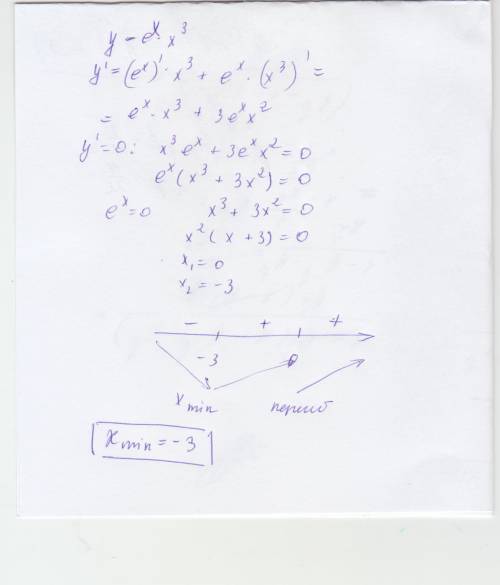 y = eˣ · x³
y' = (eˣ)' · x³ + eˣ · (x³)' =
= eˣ · x³ + 3eˣx²
y' = 0: x³eˣ + 3eˣx² = 0
eˣ(x³ + 3x²) = 0
eˣ = 0 x³ + 3x² = 0
x²(x + 3) = 0
x₁ = 0
x₂ = -3
- + +
-3 0
x min
x min = -3